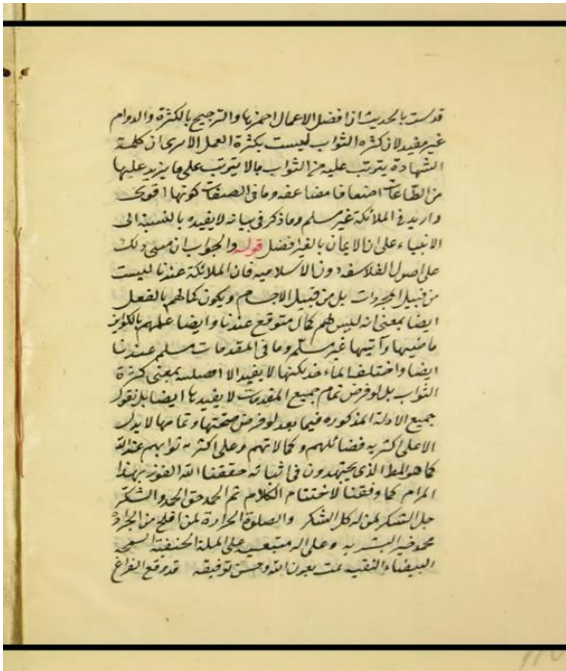 قد ثبت بالحديث ان افضل الاعمال احمزها والترجيح بالكثرة والدوام
غير مفيد لان كثرة الثواب ليست بكثرة العمل الا يرى ان كلمة
الشهادة يترتب عليه من الثواب ما لا يترتب على ما يزيد عليها
من الطاعات اضعافا مضاعفه وما فى الصفات كونها اقوى
وازيد فى الملائكة غير مسلم وما ذكر فى بيانه لا يفيده بالنسبة الى
الانبياء على ان الايمان بالغيب افضل قوله والجواب ان مبنى ذلك
على اصول الفلاسفة دون الاسلاميه فان الملائكة عندنا ليست
من قبيل المجردات بل من قبيل الاجسام ويكون كمالهم بالفعل
ايضا بمعنى انه ليس لهم كمال متوقع عندنا وايضا علمهم بالكواين
ماضيها وآتيها غير مسلم وما فى المقدمات مسلم عندنا
ايضا واختلف لكنها لا يفيد الا افضليته بمعنى كثرة
الثواب بل لو فرض تمام جميع المقدمات لا يفيدها ايضا بل نقول
جميع الادلة المذكوره فيما بعد لو فرض صحتها وتمامها لا يدل
الا على اكثريه فضائلهم وكمالاتهم وعلى اكثريه ثوابهم عند الله
كما هو المط الذى يجتهدون فى اثباته حققنا الله الفوز بهذا
المرام كما وفقنا لاختتام الكلام ثم الحمد حق الحمد والشكر
جل الشكر لمن له كل الشكر والصلوة
محمد خير البشريه وعلى اله متبعيه على الملة الحنفية السمحه
البيضاء النقيه تمت بعون الله وحسن توفيقه قد وقع الفراغ